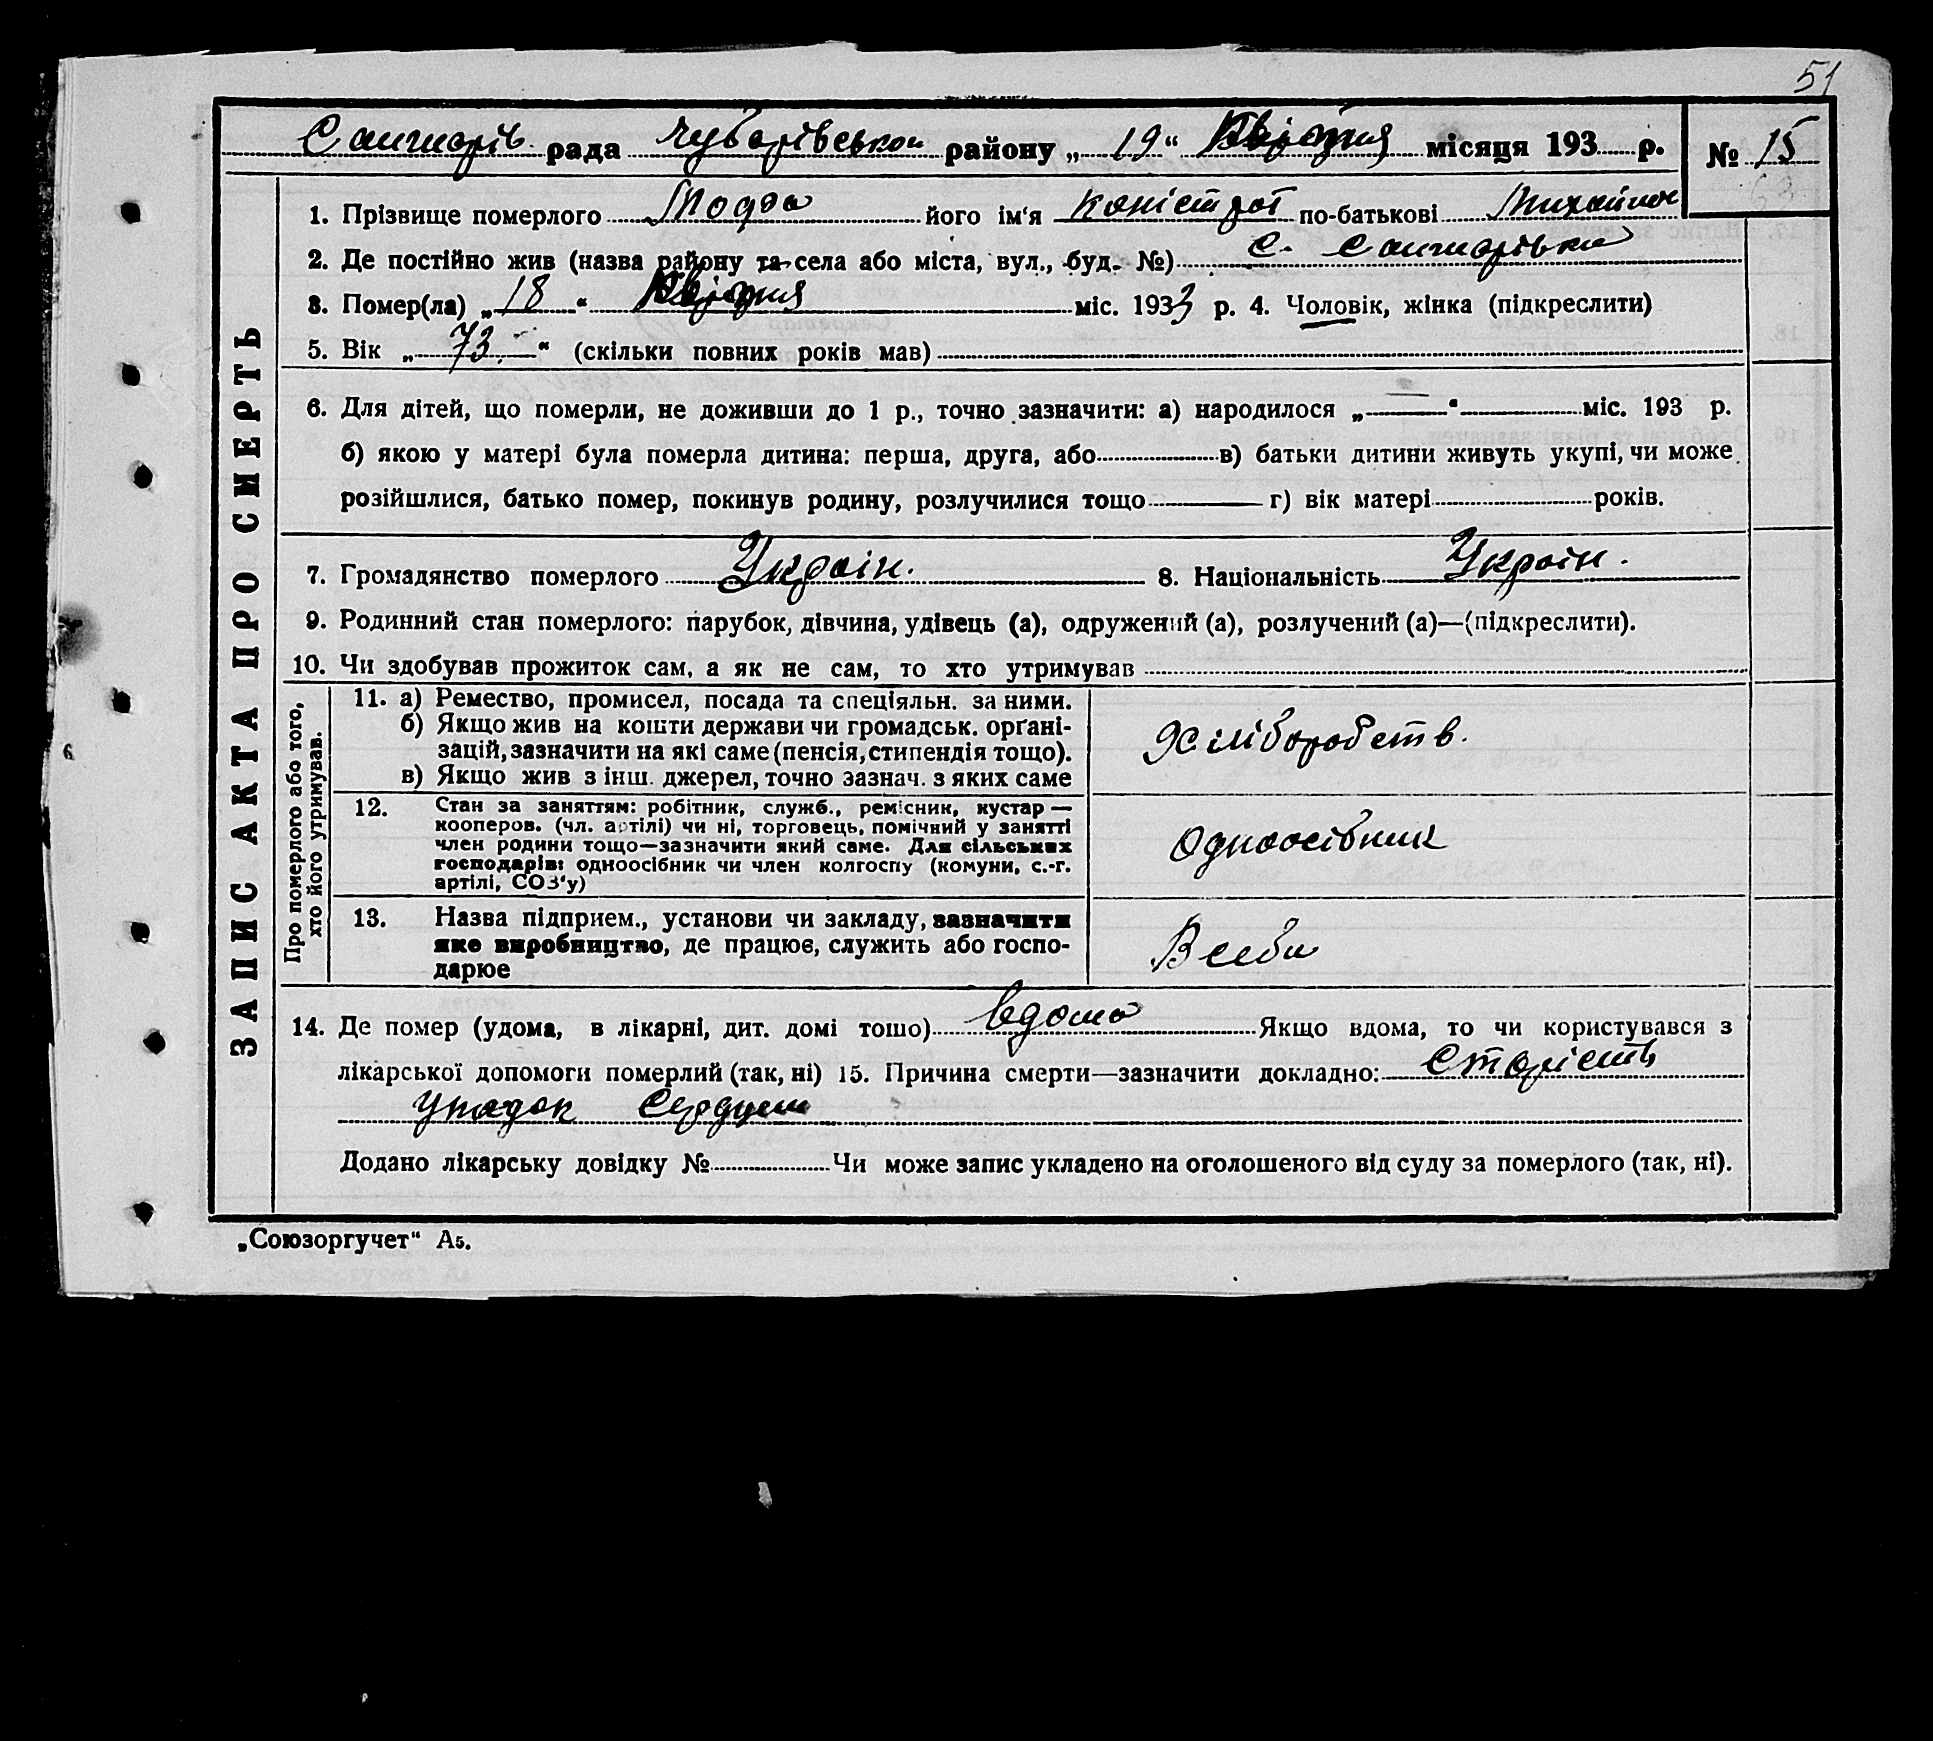 51
рада Чубарівської району „ 19 “ Квітня місяця 193 р. № 15
1. Прізвище померлого його ім'я по-батькові
2. Де постійно жив (назва району та села або міста, вул., буд. №) С.
3. Помер(ла) „ 18 “ Квітня міс. 1933 р. 4. Чоловік, жінка (підкреслити)
5. Вік „ 73 “ (скільки повних років мав)
6. Для дітей, що померли, не доживши до 1 р., точно зазначити: а) народилося „ “ міс. 193 р.
б) якою у матері була померла дитина: перша, друга, або в) батьки дитини живуть укупі, чи може
розійшлися, батько помер, покинув родину, розлучилися тощо г) вік матері років.
7. Громадянство померлого Україн. 8. Національність Україн.
9. Родинний стан померлого: парубок, дівчина, удівець (а), одружений (а), розлучений (а)—(підкреслити).
10. Чи здобував прожиток сам, а як не сам, то хто утримував
ЗАПИС АКТА ПРО СМЕРТЬ
Про померлого або того,
хто його утримував.
11. а) Ремество, промисел, посада та спеціяльн. за ними.
б) Якщо жив на кошти держави чи громадськ. орґані-
зацій, зазначити на які саме (пенсія, стипендія тощо).
в) Якщо жив з інш. джерел, точно зазнач. з яких саме
Хліборобств.
12. Стан за заняттям: робітник, служб., ремісник, кустар —
кооперов. (чл. артілі) чи ні, торговець, помічний у занятті
член родини тощо—зазначити який саме. Для сільських
господарів: одноосібник чи член колгоспу (комуни, с.-г.
артілі, СОЗ'у)
Одноосібник
13. Назва підприєм., установи чи закладу, зазначити
яке виробництво, де працює, служить або госпо-
дарює
Всеби
14. Де помер (удома, в лікарні, дит. домі тощо) вдома Якщо вдома, то чи користувався з
лікарської допомоги померлий (так, ні) 15. Причина смерти—зазначити докладно: Старість
упадок
Додано лікарську довідку № Чи може запис укладено на оголошеного від суду за померлого (так, ні).
„Союзоргучет“ А5.
6